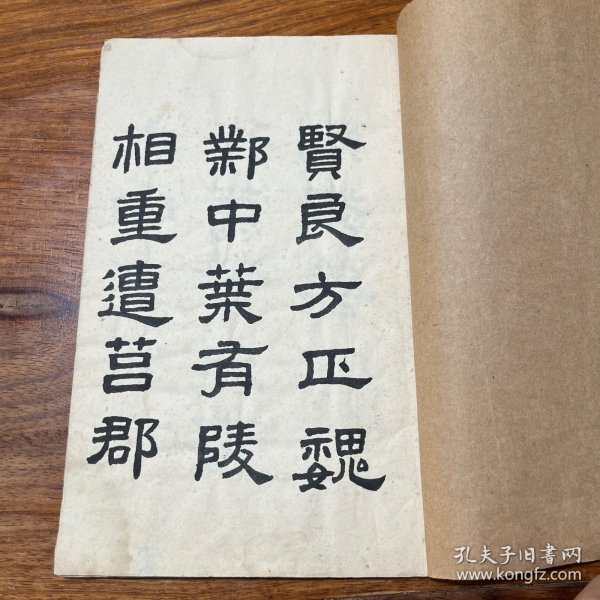 賢良方正魏
鄴中葉有陵
相重遭莒郡
孔夫子旧書网
www.kongfz.com